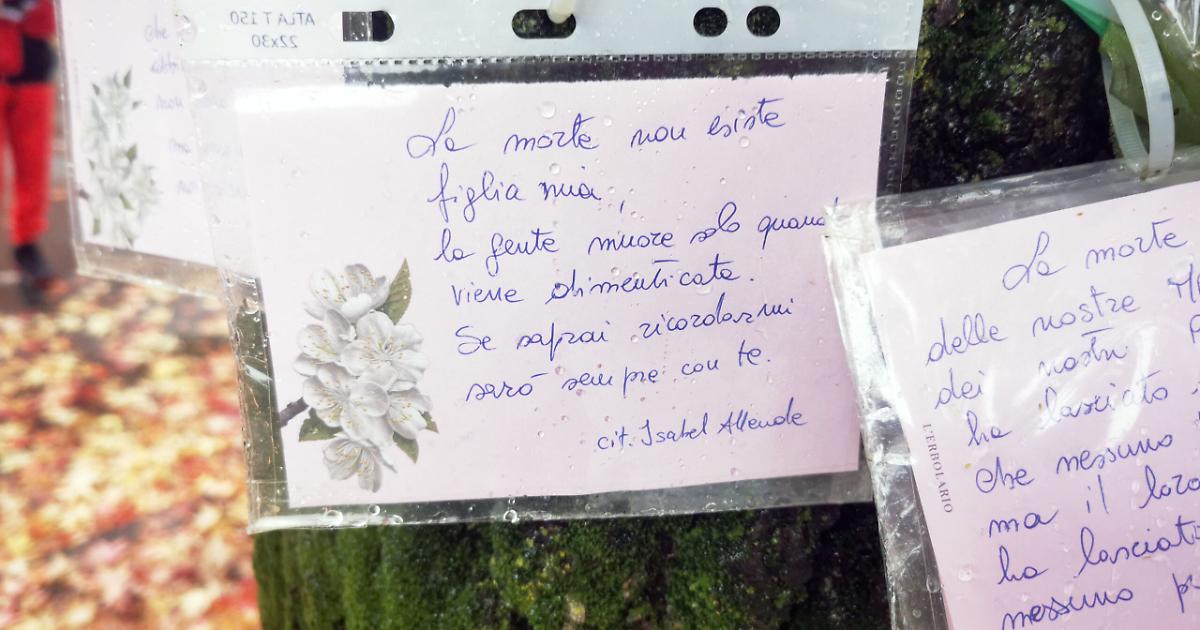 ATLA T 150
22x30
La morte non esiste
figlia mia,
la gente muore solo quand
viene dimenticata.
Se saprai ricordarmi
sarò sempre con te.
cit. Isabel Allende
La morte
delle nostre
dei nostri
ha lasciato
che nessuno
ma il loro
ha lasciat
nessuno p
L'ERBOLARIO
che
non